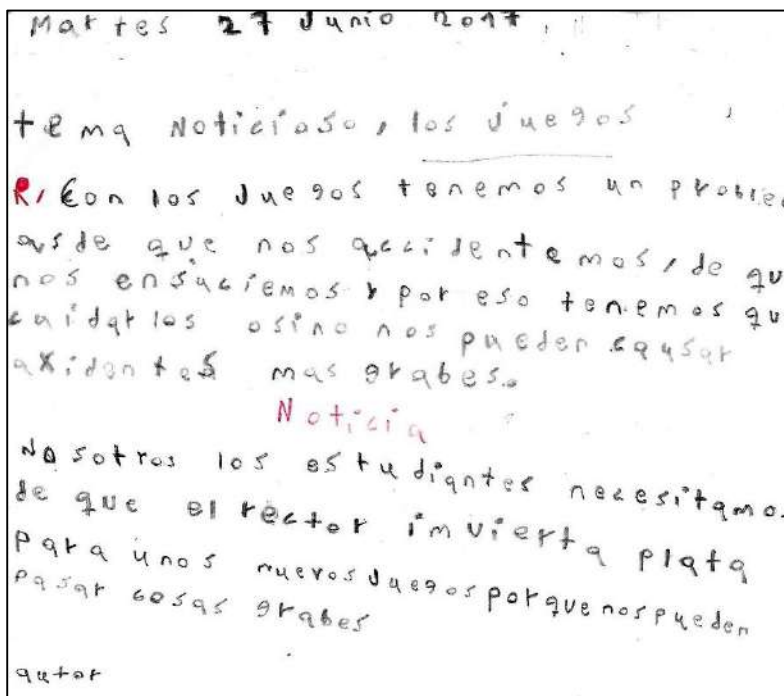 Martes 27 Junio 2017
tema Noticioso, los Juegos
R/ Con los Juegos tenemos un problem
as de que nos accidentemos, de qu
nos ensuciemos y por eso tenemos qu
cuidarlos osino nos pueden causar
axidentes mas grabes.
Noticia
Nosotros los estudiantes necesitamo
de que el rector imvierta plata
para unos nuevos Juegos porque nos pueden
pasar cosas grabes
autor